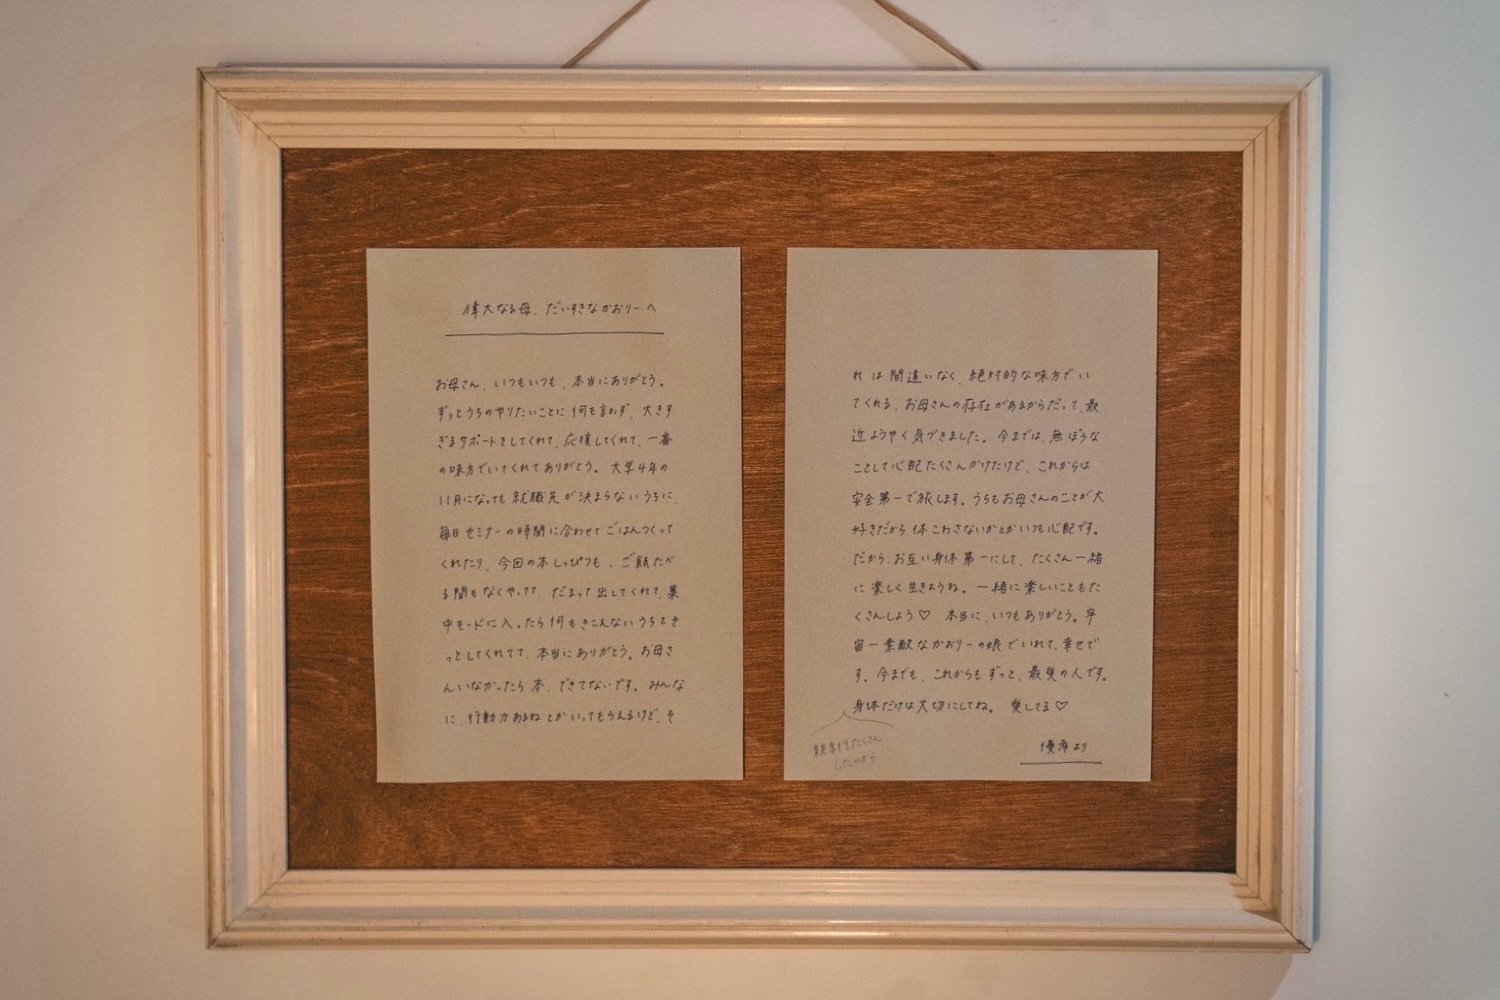 偉大なる母、だいすきなかおりーへ
お母さん、いつもいつも、本当にありがとう。
ずっとうちのやりたいことに何も言わず、大きす
ぎるサポートをしてくれて、応援してくれて、一番
の味方でいてくれてありがとう。大学4年の
11月になっても就職先が決まらないうちに、
毎日セミナーの時間に合わせてごはんつくって
くれたり、今回の本しっぴつも、ご飯たべ
る間もなくやってて、だまって出してくれて、集
中モードに入ったら何もきこえないうちをそ
っとしてくれてて、本当にありがとう。お母さ
んいなかったら本、できてないです。みんな
に、行動力あるねとかいってもらえるけど、そ
れは間違いなく、絶対的な味方でい
てくれる、お母さんの存在があるからだって、最
近ようやく気づきました。今までは、無ぼうな
ことして心配たくさんかけたけど、これからは
安全第一で旅します。うちもお母さんのことが大
好きだから体こわさないかとかいつも心配です。
だから、お互い身体第一にして、たくさん一緒
に楽しく生きようね。一緒に楽しいこともた
くさんしよう♡ 本当に、いつもありがとう。宇
宙一素敵なかおりーの娘でいれて、幸せで
す。今までも、これからもずっと、最愛の人です。
身体だけは大切にしてね。愛してる♡
親孝行たくさん
したいから
優海より